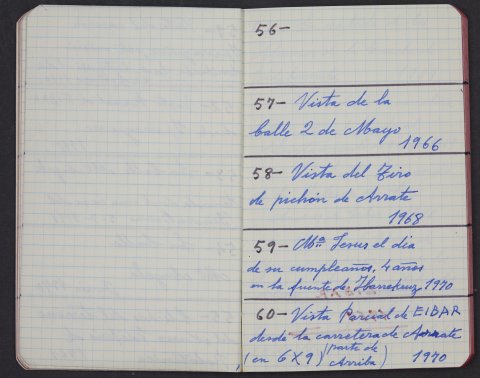 56-
57- Vista de la
Calle 2 de Mayo
1966
58- Vista del Tiro
de pichón de Arrate
1968
59- Mª Jesus el dia
de su cumpleaños, 4 años
en la fuente de Ibarrekruz 1970
60- Vista Parcial de EIBAR
desde la carretera de Arrate
(en 6X9) (parte de Arriba) 1970